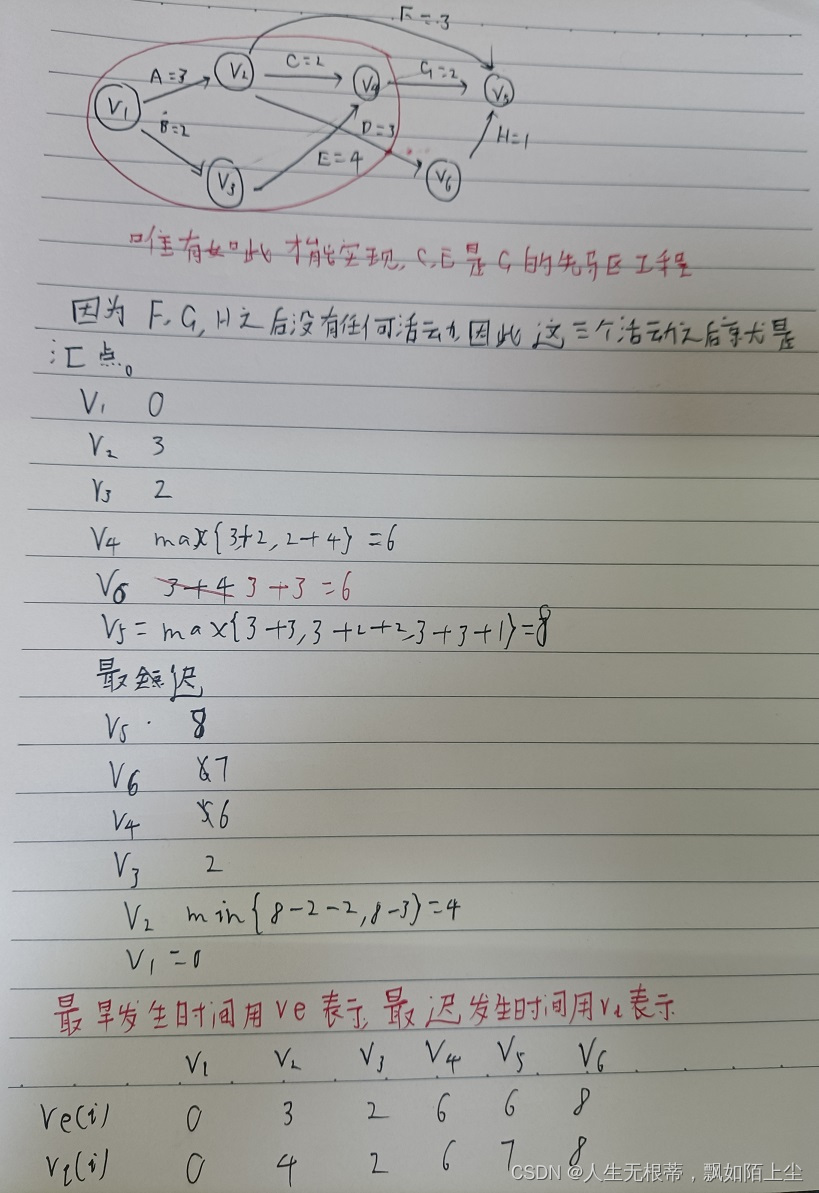 F=3
A=3
V₂
C=2
V₄
G=2
V₅
V₁
B=2
D=3
H=1
E=4
V₃
V₆
唯有如此才能实现,C,E是G的先驱工程
因为 F,G,H之后没有任何活动,因此这三个活动之后就是
汇点。
V₁ 0
V₂ 3
V₃ 2
V₄ max{3+2,2+4}=6
V₆ 3+4 3+3=6
V₅=max{3+3,3+2+2,3+3+1}=8
最迟
V₅ 8
V₆ 7
V₄ 6
V₃ 2
V₂ min{8-2-2,8-3}=4
V₁=0
最早发生时间用ve表示,最迟发生时间用vl表示
V₁ V₂ V₃ V₄ V₅ V₆
ve(i) 0 3 2 6 6 8
vl(i) 0 4 2 6 7 8
CSDN @人生无根蒂,飘如陌上尘